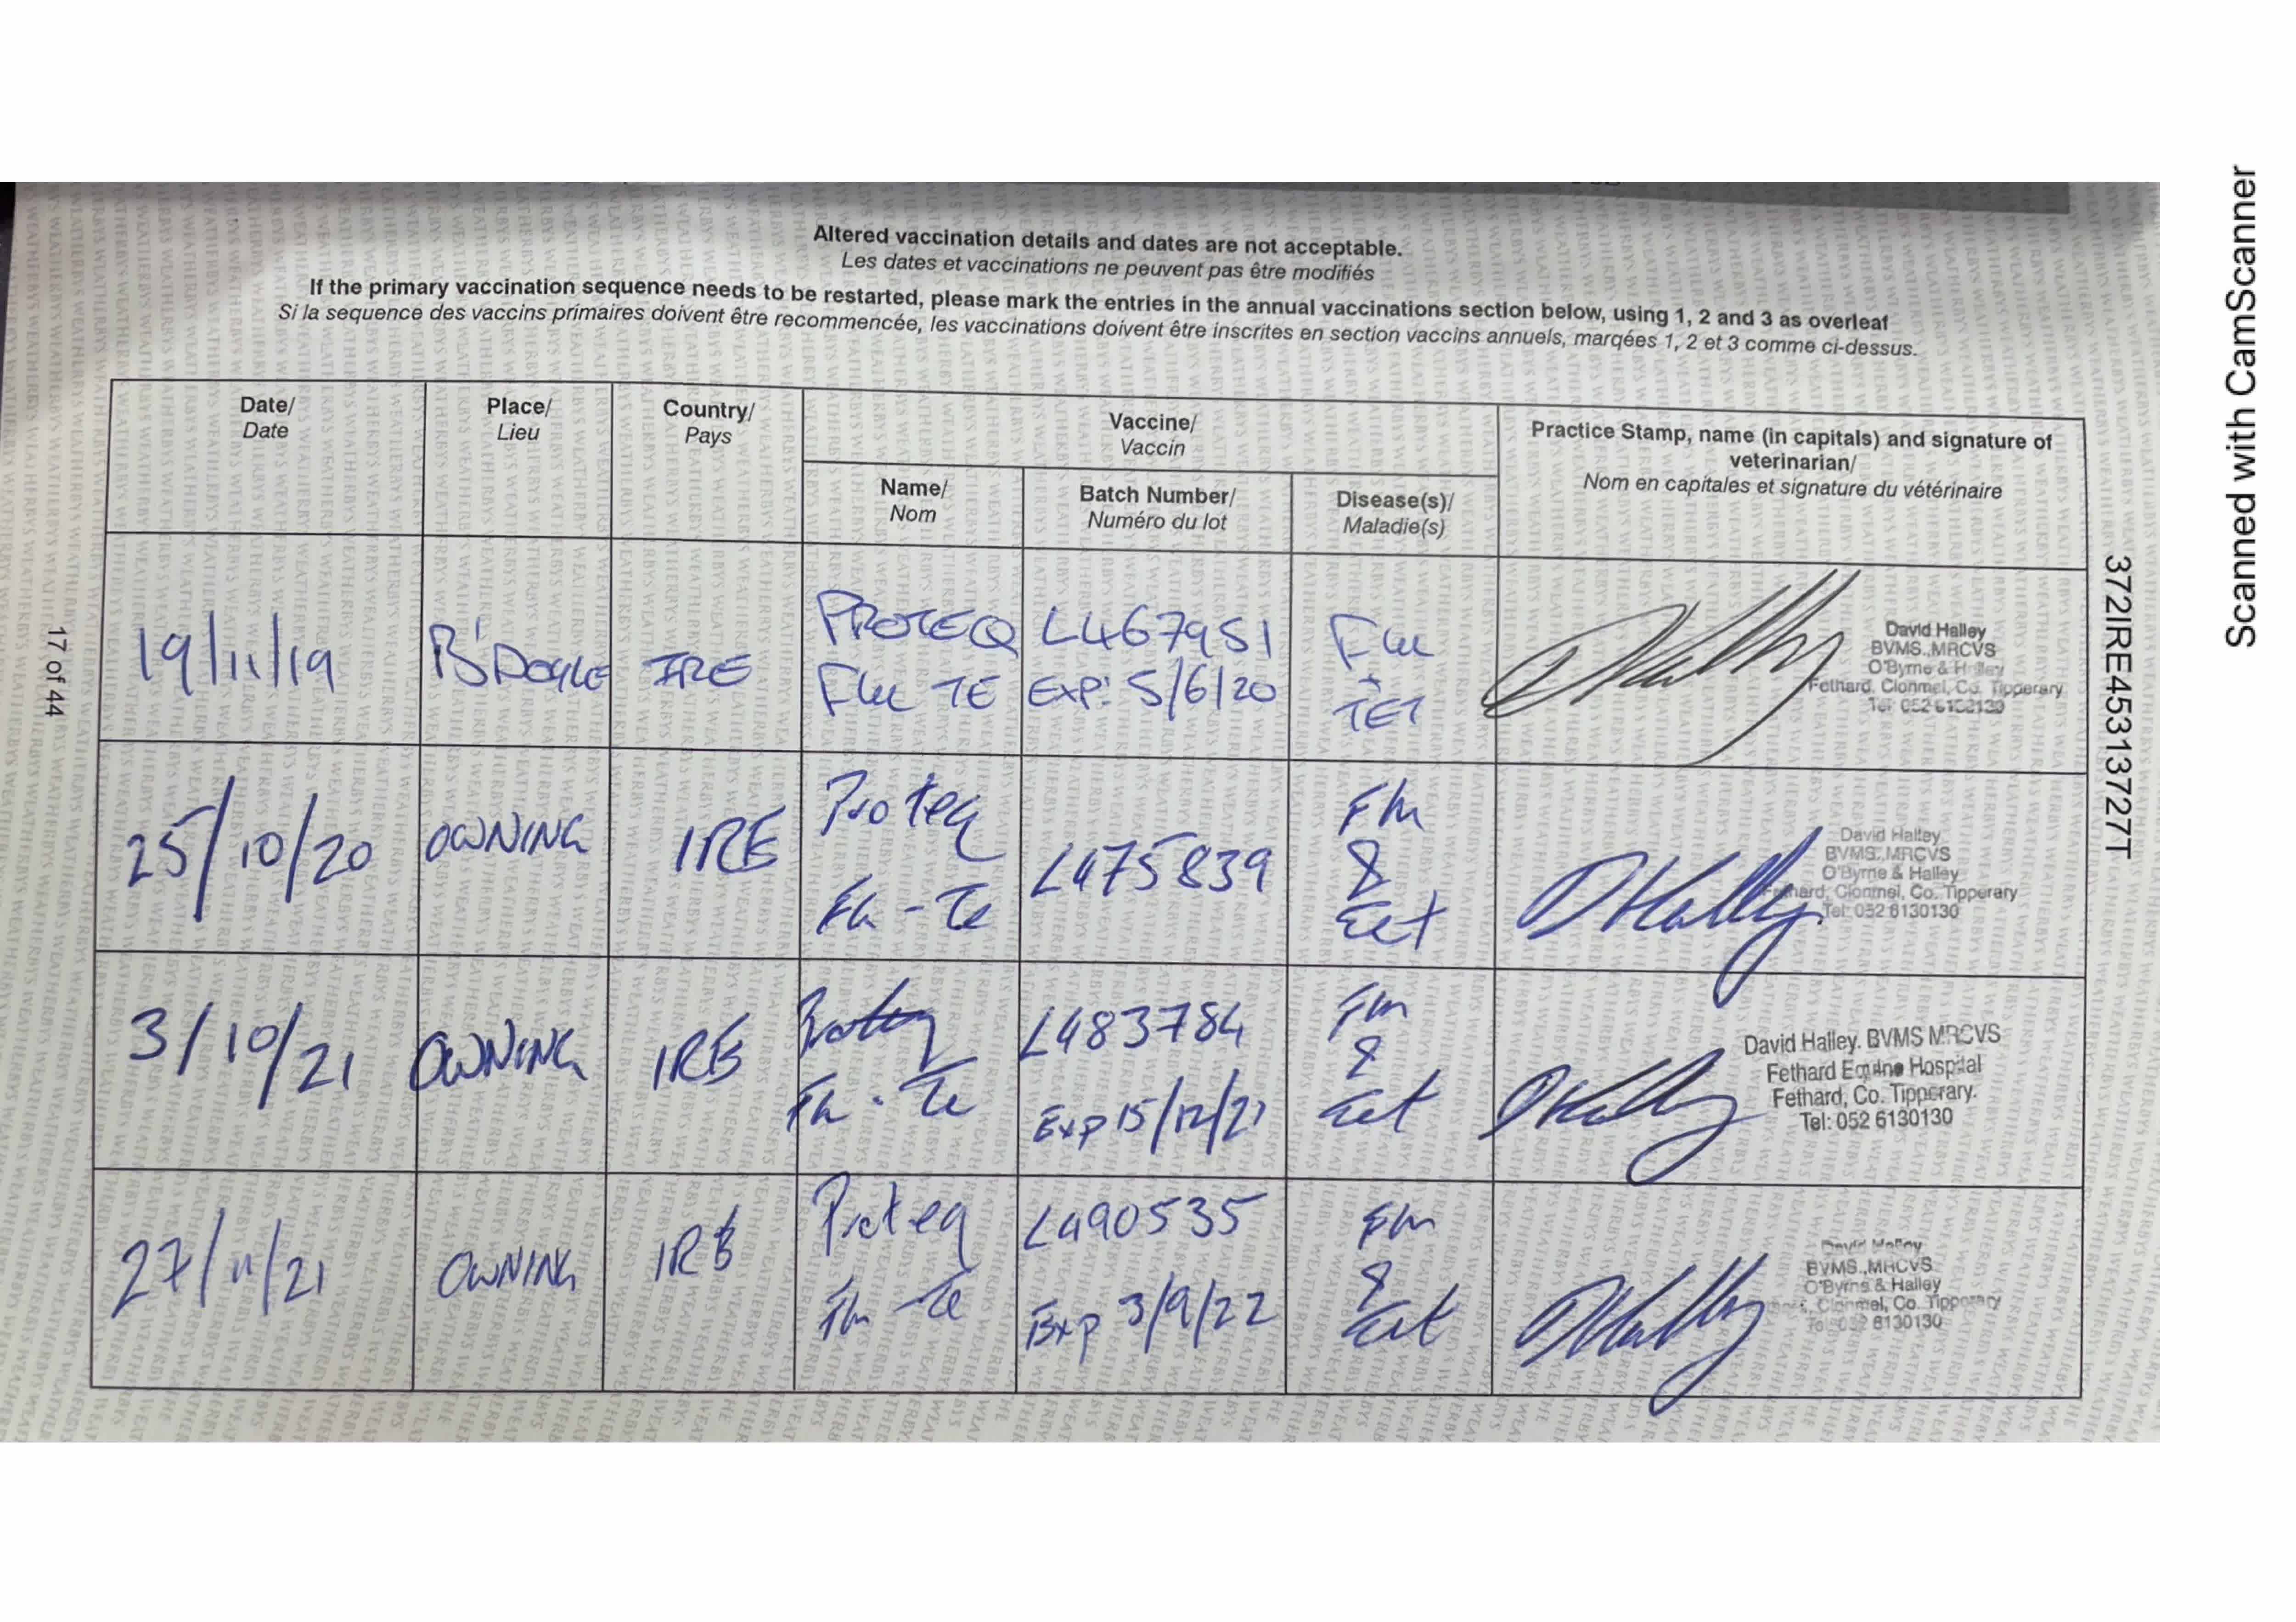 Altered vaccination details and dates are not acceptable.
Les dates et vaccinations ne peuvent pas être modifiés
If the primary vaccination sequence needs to be restarted, please mark the entries in the annual vaccinations section below, using 1, 2 and 3 as overleaf
Si la sequence des vaccins primaires doivent être recommencée, les vaccinations doivent être inscrites en section vaccins annuels, marqées 1, 2 et 3 comme ci-dessus.
Date/
Date
Place/
Lieu
Country/
Pays
Vaccine/
Vaccin
Name/
Nom
Batch Number/
Numéro du lot
Disease(s)/
Maladie(s)
Practice Stamp, name (in capitals) and signature of
veterinarian/
Nom en capitales et signature du vétérinaire
19/11/19
B'DOYLE
IRE
PROTEQ
Flu TE
L467951
EXP: 5/6/20
Flu
+
TET
David Halley
BVMS.,MRCVS
O'Byrne & Halley
Fethard, Clonmel, Co. Tipperary
Tel: 052 6130130
25/10/20
OWNING
IRE
Proteq
Flu - Te
L475839
Flu
&
Tet
David Halley
BVMS.,MRCVS
O'Byrne & Halley
Fethard, Clonmel, Co. Tipperary
Tel: 052 6130130
3/10/21
OWNING
IRE
Proteq
Flu - Te
L483784
Exp 15/12/21
Flu
&
Tet
David Halley. BVMS MRCVS
Fethard Equine Hospital
Fethard, Co. Tipperary.
Tel: 052 6130130
27/11/21
OWNING
IRE
Proteq
Flu - Te
L490535
Exp 3/9/22
Flu
&
Tet
David Halley
BVMS.,MRCVS
O'Byrne & Halley
Clonmel, Co. Tipperary
Tel: 052 6130130
17 of 44
372IRE45313727T
Scanned with CamScanner